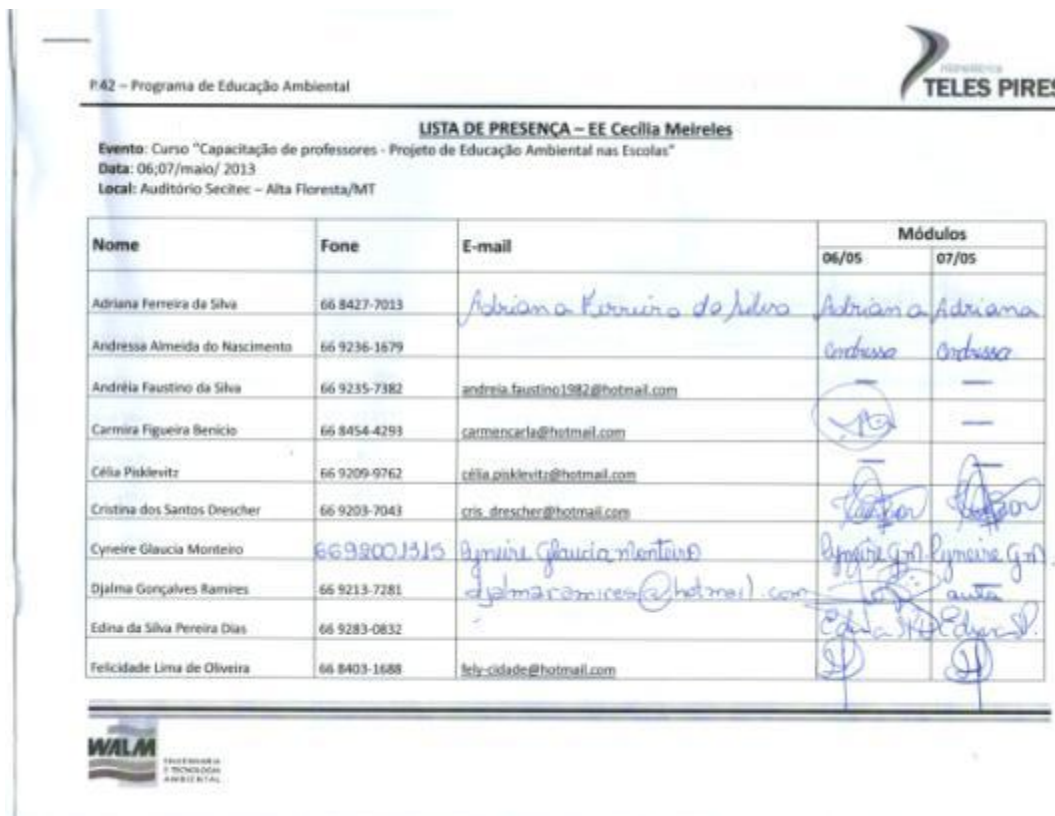 P.42 – Programa de Educação Ambiental
TELES PIRES
LISTA DE PRESENÇA – EE Cecília Meireles
Evento: Curso "Capacitação de professores - Projeto de Educação Ambiental nas Escolas"
Data: 06;07/maio/ 2013
Local: Auditório Secitec – Alta Floresta/MT
Nome Fone E-mail Módulos
06/05 07/05
Adriana Ferreira da Silva 66 8427-7013 Adriana Ferreira da Silva Adriana Adriana
Andressa Almeida do Nascimento 66 9236-1679 Andressa Andressa
Andréia Faustino da Silva 66 9235-7382 andreia.faustino1982@hotmail.com — —
Carmira Figueira Benício 66 8454-4293 carmencarla@hotmail.com —
Célia Pisklevitz 66 9209-9762 célia.pisklevitz@hotmail.com — —
Cristina dos Santos Drescher 66 9203-7043 cris_drescher@hotmail.com
Cyneire Glaucia Monteiro 6692001315 Cyneire Glaucia Monteiro Cyneire G.M. Cyneire G.M.
Djalma Gonçalves Ramires 66 9213-7281 djalmaramires@hotmail.com
Edina da Silva Pereira Dias 66 9283-0832
Felicidade Lima de Oliveira 66 8403-1688 fely-cidade@hotmail.com
WALM
ENGENHARIA
E TECNOLOGIA
AMBIENTAL